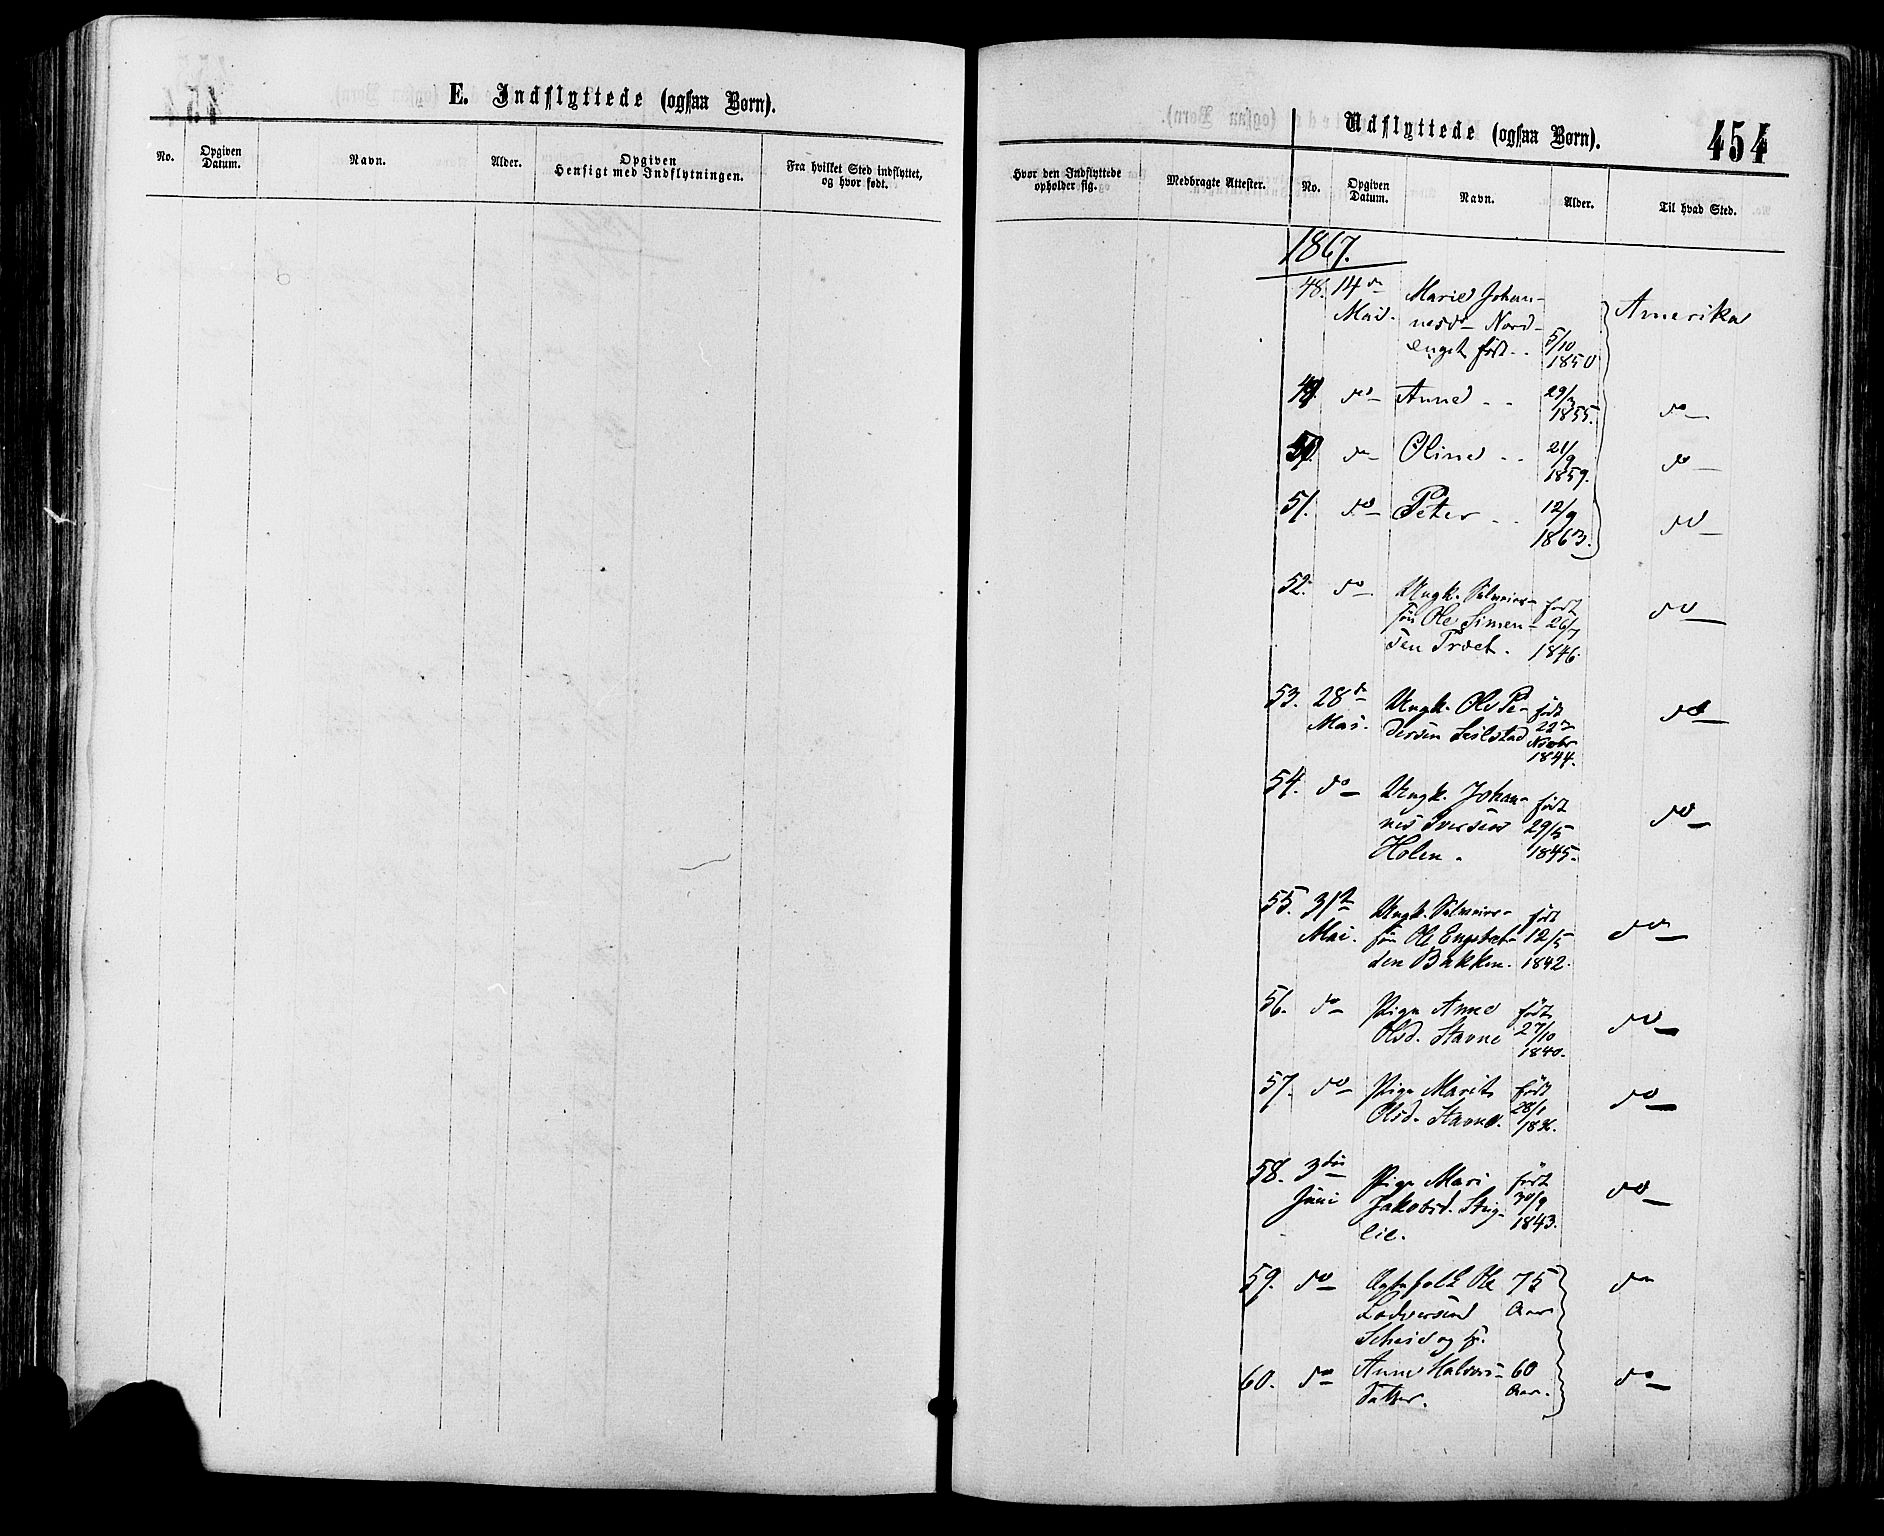 E. Indflyttede (ogsaa Børn).
No.
Opgiven
Datum.
Navn.
Alder.
Opgiven
Hensigt med Indflytningen.
Fra hvilket Sted indflyttet,
og hvor født.
Hvor den Indflyttede
opholder sig.
Medbragte Attester.
Udflyttede (ogsaa Børn).
454
No.
Opgiven
Datum.
Navn.
Alder.
Til hvad Sted.
1867.
48. 14de Marie Johan- Amerika
Mai. nesdr Nord-
enget født 5/10
1850
49. do Anne 29/3 do
1855.
50. do Oline 21/9 do
1859.
51. do Peter 12/9 do
1863.
52. do Ungk. født do
søn Ole Simen- 26/7
sen Træet. 1846.
53. 28de Ungk. Ole Pe- født do
Mai. dersen 22de
Novbr
1844.
54. do Ungk. Johan- født do
nes Iversen 29/5
Holen. 1845.
55. 31te Ungk. født do
Mai. søn Ole 12/5
Bakken. 1842.
56. do Pige Anne født do
Olsd. Stavne 27/10
1840.
57. do Pige Marit født do
Olsd. Stavne. 28/1
58. 3die Pige Mari født do
Juni Jakobsd. Stig- 30/9
lie. 1843.
59. do Ægtefolk Ole 75 do
Aar
og H.
60. do Anne Halvors- 60 do
datter. Aar.